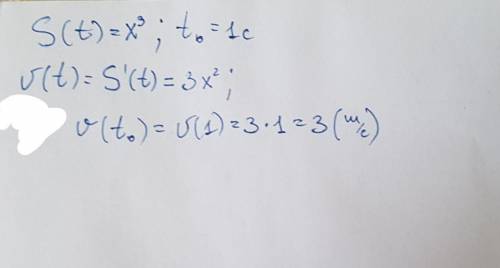 S(t)=x³; t₀=1c
υ(t)=S'(t)=3x²;
υ(t₀)=υ(1)=3·1=3(м/с)